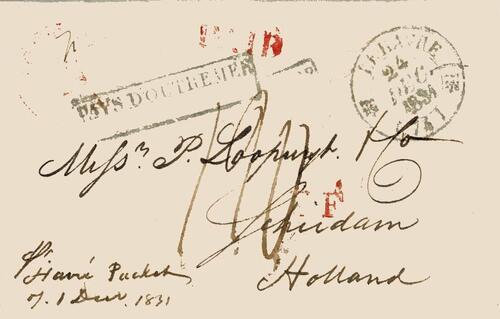 PAID
PAYS D'OUTREMER
LE HAVRE
24
DEC
1831
(74)
Messrs P. Loopuyt & Co
F
Schiedam
Holland
pr Havre Packet
of 1 Decr 1831